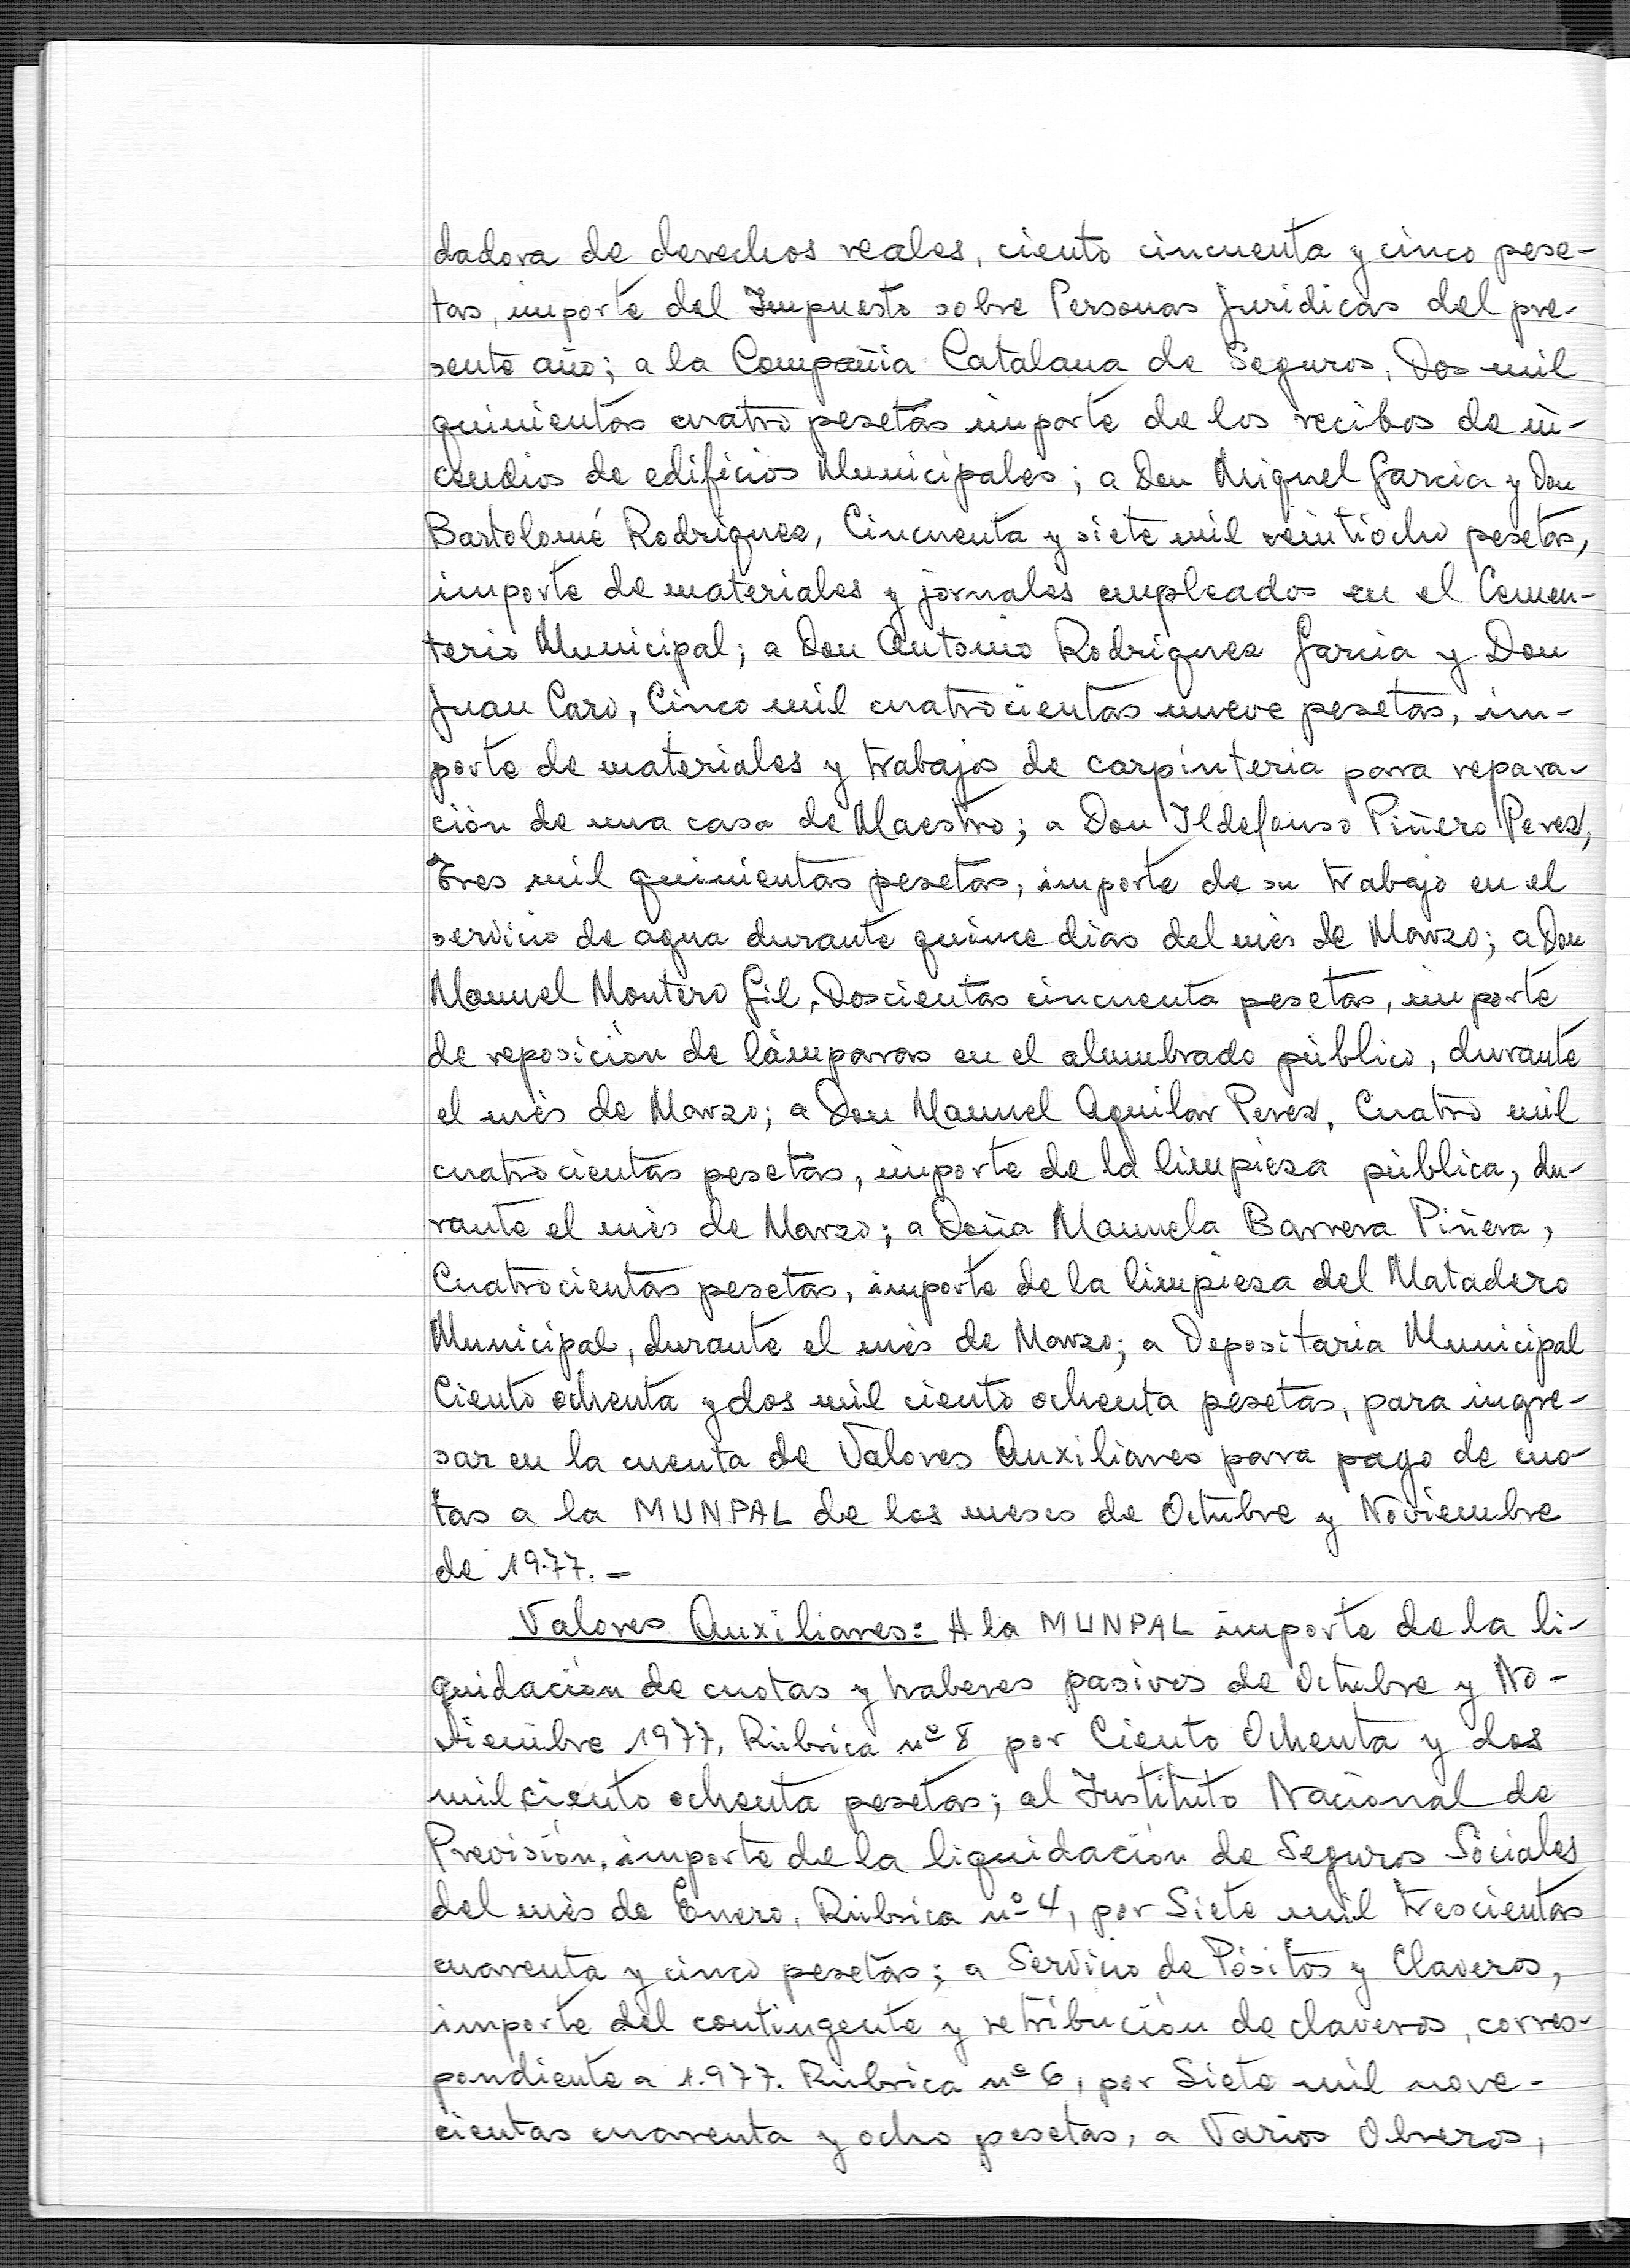 dadora de derechos reales, ciento cincuenta y cinco pese-
tas, importe del Impuesto sobre Personas Juridicas del pre-
sente año; a la Compañia Catalana de Seguros, Dos mil
quinientas cuatro pesetas importe de los recibos de in-
cendios de edificios Municipales; a Don Miguel Garcia y Don
Bartolomé Rodriguez, Cincuenta y siete mil veintiocho pesetas,
importe de materiales y jornales empleados en el Cemen-
terio Municipal; a Don Antonio Rodriguez Garcia y Don
Juan Caro, Cinco mil cuatrocientas nueve pesetas, im-
porte de materiales y trabajos de carpinteria para repara-
ción de una casa de Maestro; a Don Ildefonso Piñero Perez,
Tres mil quinientas pesetas, importe de su trabajo en el
servicio de agua durante quince dias del mes de Marzo; a Don
Manuel Montero Gil, Doscientas cincuenta pesetas, importe
de reposición de lámparas en el alumbrado público, durante
el mès de Marzo; a Don Manuel Aguilar Perez, Cuatro mil
cuatrocientas pesetas, importe de la limpieza pública, du-
rante el mès de Marzo; a Doña Manuela Barrera Piñera,
Cuatrocientas pesetas, importe de la limpieza del Matadero
Municipal, durante el mès de Marzo; a Depositaria Municipal
Ciento ochenta y dos mil ciento ochenta pesetas, para ingre-
sar en la cuenta de Valores Auxiliares para pago de cuo-
tas a la MUNPAL de los meses de Octubre y Noviembre
de 1977.-
Valores Auxiliares: A la MUNPAL importe de la li-
quidación de cuotas y haberes pasivos de Octubre y No-
viembre 1977, Rúbrica nº 8 por Ciento Ochenta y dos
mil ciento ochenta pesetas; al Instituto Nacional de
Previsión, importe de la liquidación de Seguros Sociales
del mès de Enero, Rúbrica nº 4, por Siete mil trescientas
cuarenta y cinco pesetas; a Servicio de Pósitos y Claveros,
importe del contingente y retribución de claveros, corres-
pondiente a 1.977. Rúbrica nº 6, por Siete mil nove-
cientas cuarenta y ocho pesetas, a Varios Obreros,